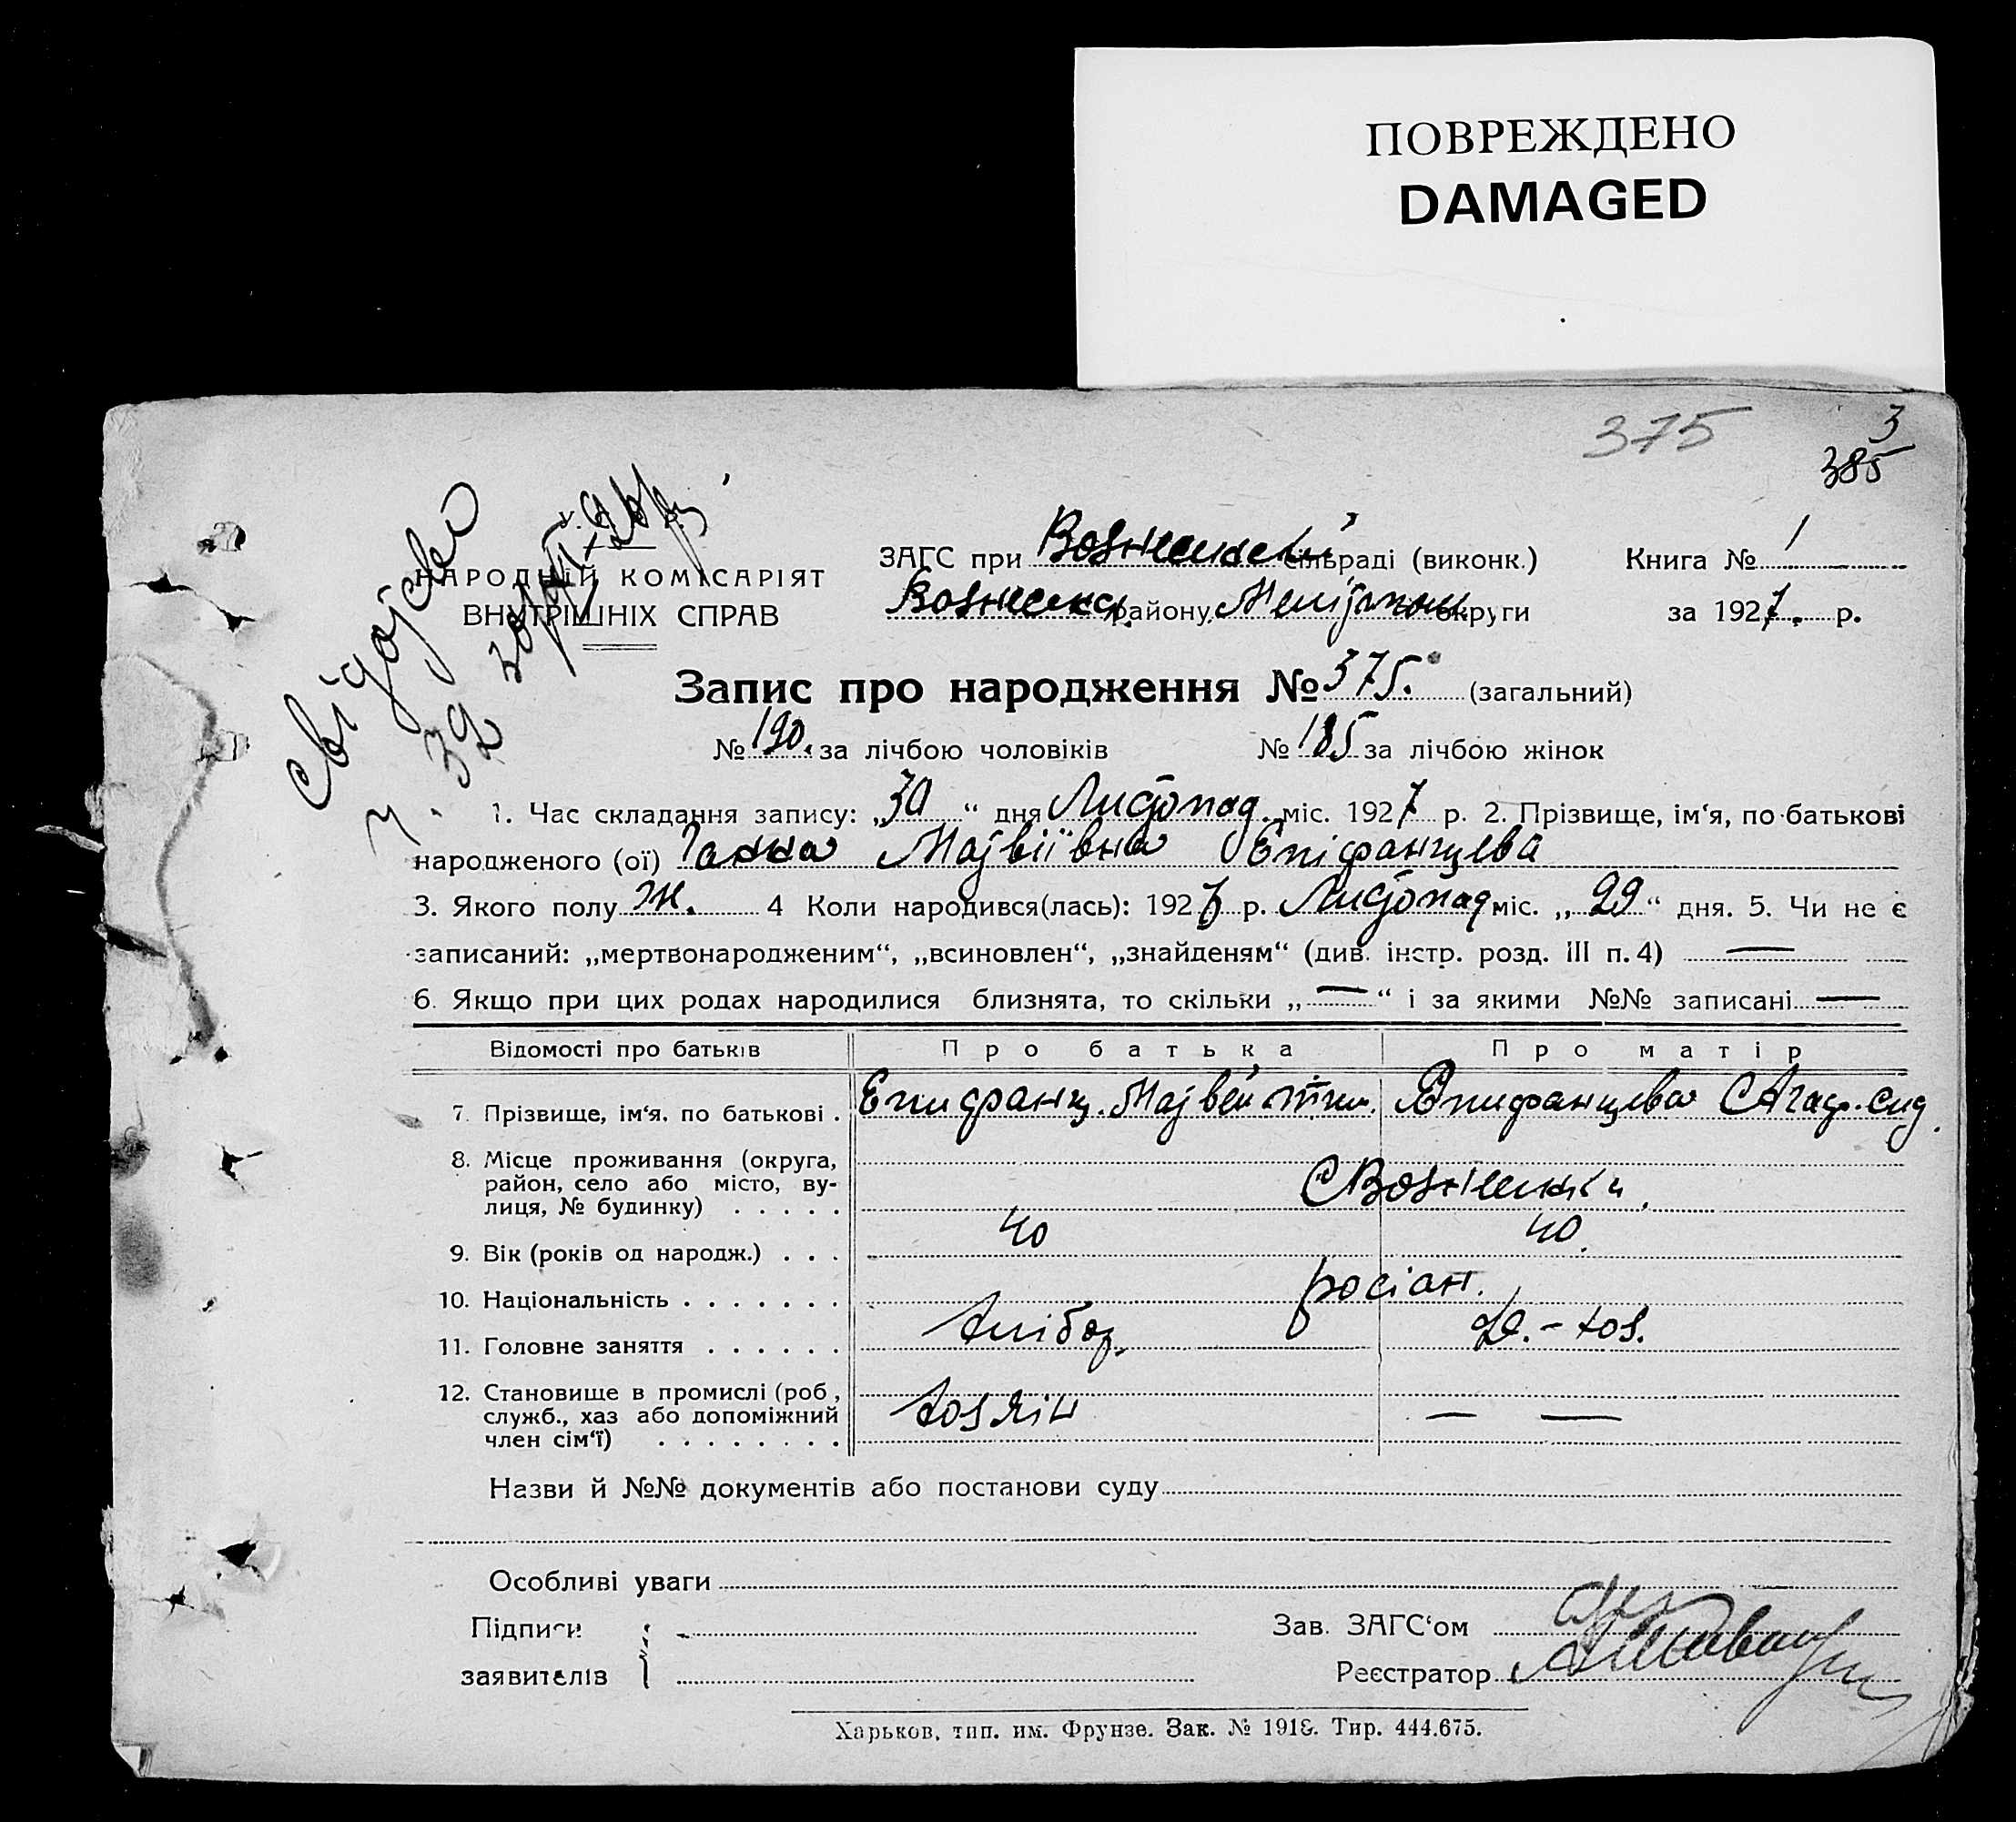 ПОВРЕЖДЕНО
DAMAGED
375
3
385
НАРОДНІЙ КОМІСАРІЯТ
ВНУТРІШНІХ СПРАВ
ЗАГС при Вознесенській сільраді (виконк.) Книга № 1
Вознесенск. району, Мелітопол. округи за 1927. р.
Запис про народження № 375. (загальний)
№ 190. за лічбою чоловіків № 185 за лічбою жінок
1. Час складання запису: „30“ дня Листопад. міс. 1927 р. 2. Прізвище, ім‘я, по-батькові
народженого (ої) Ганна Матвіївна Епіфанцева
3. Якого полу ж. 4 Коли народився(лась): 1927 р. Листопад міс. „29“ дня. 5. Чи не є
записаний: „мертвонародженим“, „всиновлен“, „знайденям“ (див. інстр. розд. III п. 4) —
6. Якщо при цих родах народилися близнята, то скільки „—“ і за якими №№ записані —
Відомості про батьків Про батька Про матір
7. Прізвище, ім‘я, по батькові . Епифанц. Матвей Епифанцева Агаф. Сид.
8. Місце проживання (округа,
район, село або місто, ву-
лиця, № будинку) . . . . . С Вознесенки
9. Вік (років од народж.) . . . 40 40.
10. Національність . . . . . . . росіан.
11. Головне заняття . . . . . . хлібор. д. - хоз.
12. Становище в промислі (роб,
служб., хаз або допоміжний
член сім‘ї) . . . . . . . . хозяін — —
Назви й №№ документів або постанови суду
Особливі уваги
Підписи
заявителів
Зав. ЗАГС‘ом
Реєстратор
Харьков, тип. им. Фрунзе. Зак. № 1918. Тир. 444.675.